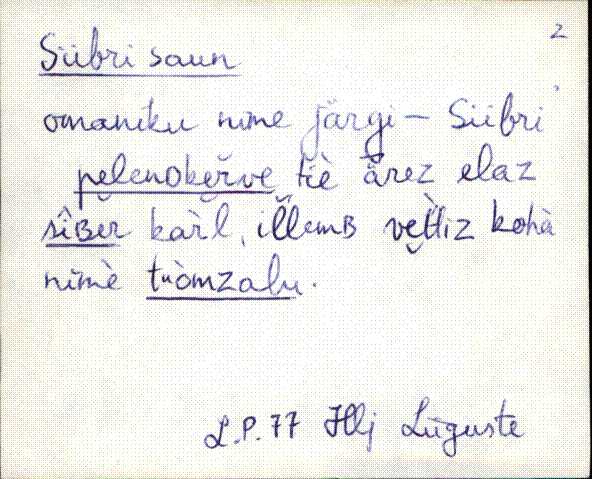 2
Siibri saun
omaniku nime järgi – Siibri
pelenokerve tiè ārez elaz
sîʙer kàrl, illemʙ vettiz kohà
nimè tùomzalu.
L.P. 77 Hlj Lüguste